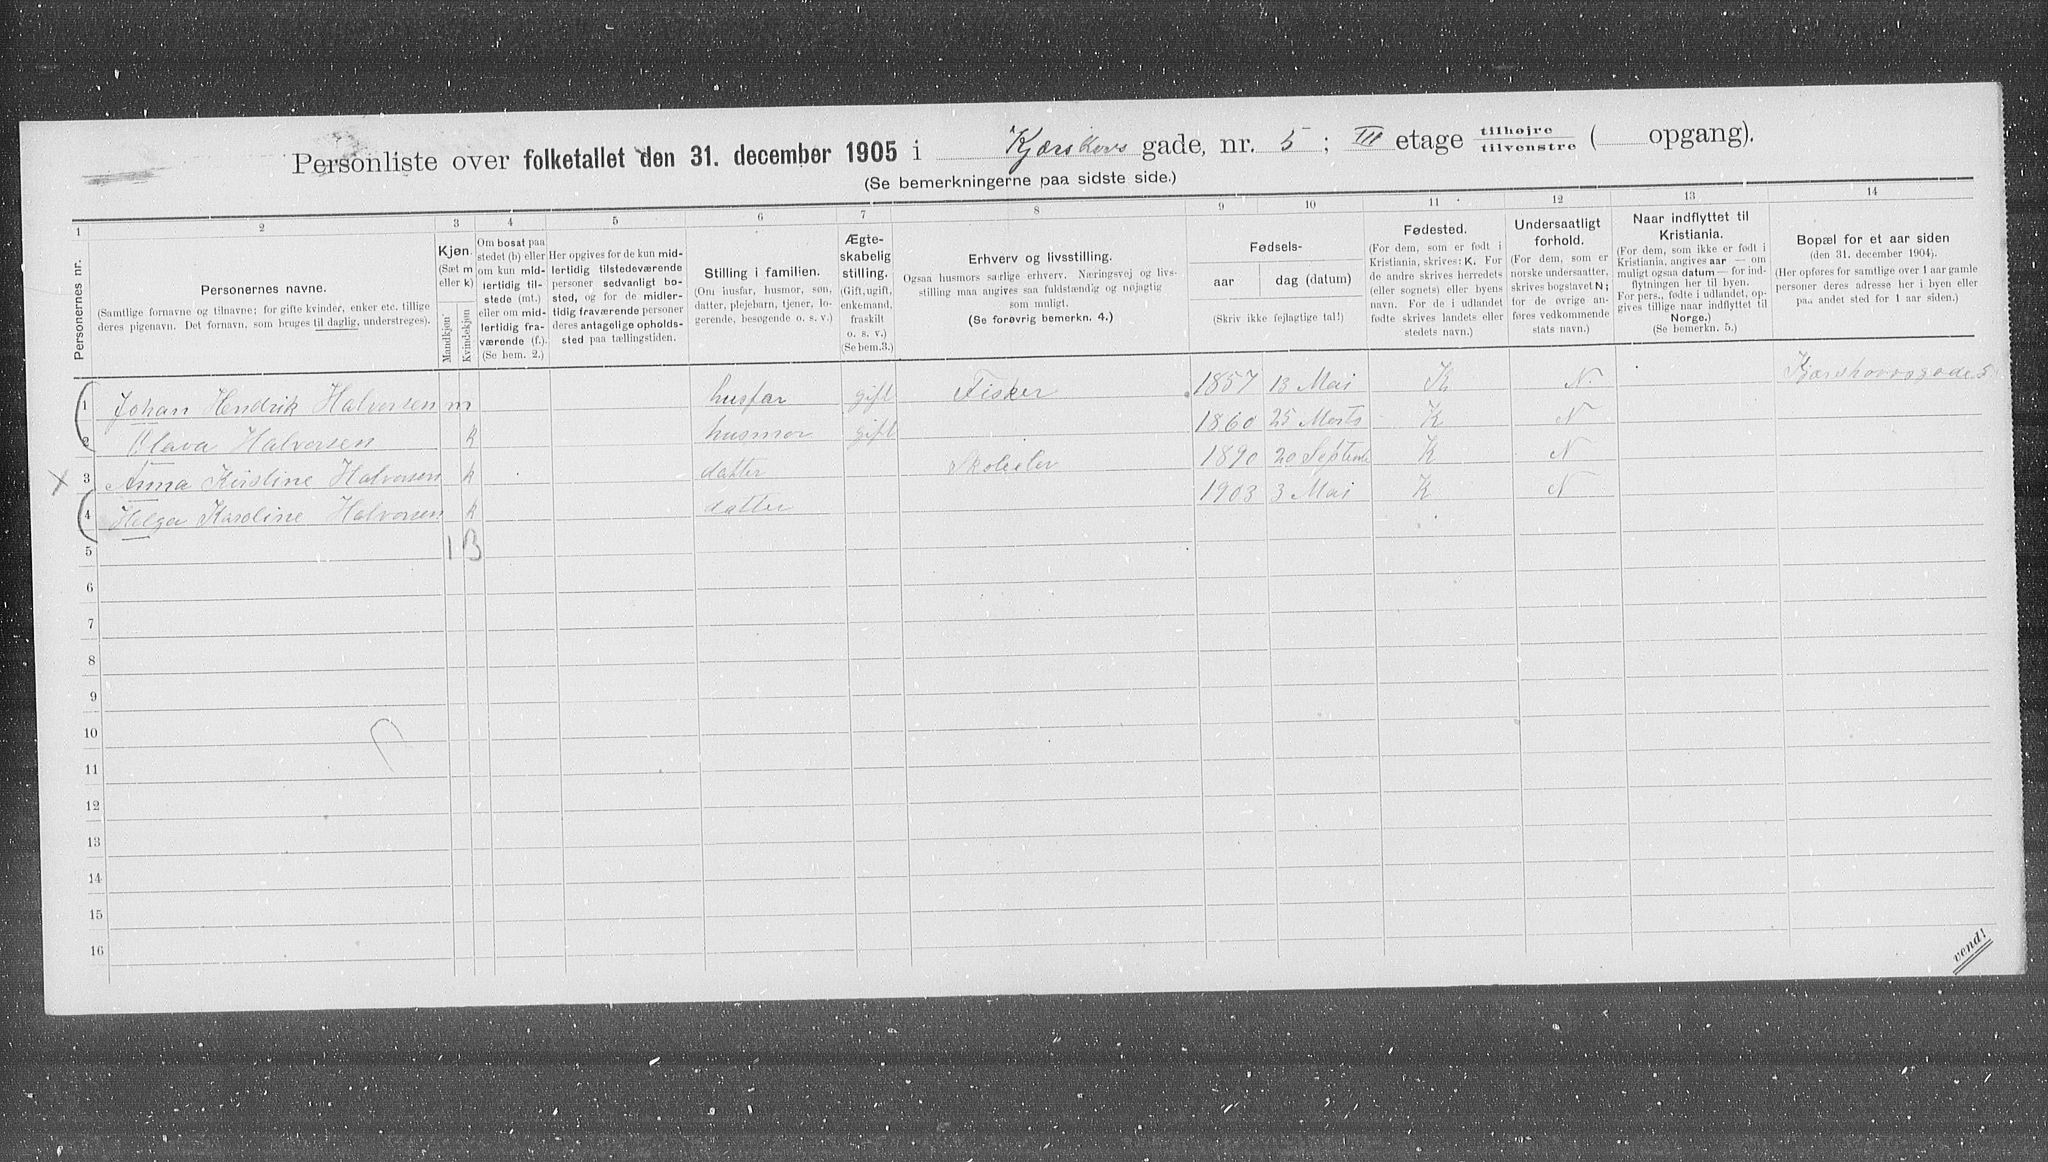 Personliste over folketallet den 31. december 1905 i Kjærskovs gade, nr. 5; III etage tilhøjre / tilvenstre ( opgang).
(Se bemerkningerne paa sidste side.)
1 2 3 4 5 6 7 8 9 10 11 12 13 14
Personernes nr.
Personernes navne.
(Samtlige fornavne og tilnavne; for gifte kvinder, enker etc. tillige
deres pigenavn. Det fornavn, som bruges til daglig, understreges).
Kjøn.
(Sæt m
eller k)
Mandkjøn
Kvindekjøn
Om bosat paa
stedet (b) eller
om kun mid-
lertidig til-
stede (mt.)
eller om mid-
lertidig fra-
værende (f.).
(Se bem. 2.)
Her opgives for de kun mid-
lertidig tilstedeværende
personer sedvanligt bo-
sted, og for de midler-
tidig fraværende personer
deres antagelige opholds-
sted paa tællingstiden.
Stilling i familien.
(Om husfar, husmor, søn,
datter, plejebarn, tjener, lo-
gerende, besøgende o. s. v.)
Ægte-
skabelig
stilling.
(Gift, ugift,
enkemand,
fraskilt
o. s. v.)
(Se bem.3.)
Erhverv og livsstilling.
Ogsaa husmors særlige erhverv. Næringsvej og livs-
stilling maa angives saa fuldstændig og nøjagtig
som muligt.
(Se forøvrig bemerkn. 4.)
Fødsels-
aar dag (datum)
(Skriv ikke fejlagtige tal!)
Fødested.
(For dem, som er født i
Kristiania, skrives: K. For
de andre skrives herredets
(eller sognets) eller byens
navn. For de i udlandet
fødte skrives landets eller
stedets navn.)
Undersaatligt
forhold.
(For dem, som er
norske undersaatter,
skrives bogstavet N;
for de øvrige an-
føres vedkommende
stats navn.)
Naar indflyttet til
Kristiania.
(For dem, som ikke er født i
Kristiania, angives aar — om
muligt ogsaa datum — for ind-
flytningen her til byen.
For pers., fødte i udlandet, op-
gives tillige naar indflyttet til
Norge.)
(Se bemerkn. 5.)
Bopæl for et aar siden
(den 31. december 1904).
(Her opføres for samtlige over 1 aar gamle
personer deres adresse her i byen eller
paa andet sted for 1 aar siden.)
1 Johan Hendrik Halvorsen m husfar gift Fisker 1857 13 Mai K N. Kjærskovsgade 5
2 Olava Halvorsen k husmor gift 1860 25 Marts K N
X 3 Anna Kirstine Halvorsen k datter Skoleelev 1890 20 Septembr K N
4 Helga Karoline Halvorsen k datter 1903 3 Mai K N
5 1 3
6
7
8
9
10
11
12
13
14
15
16
vend!